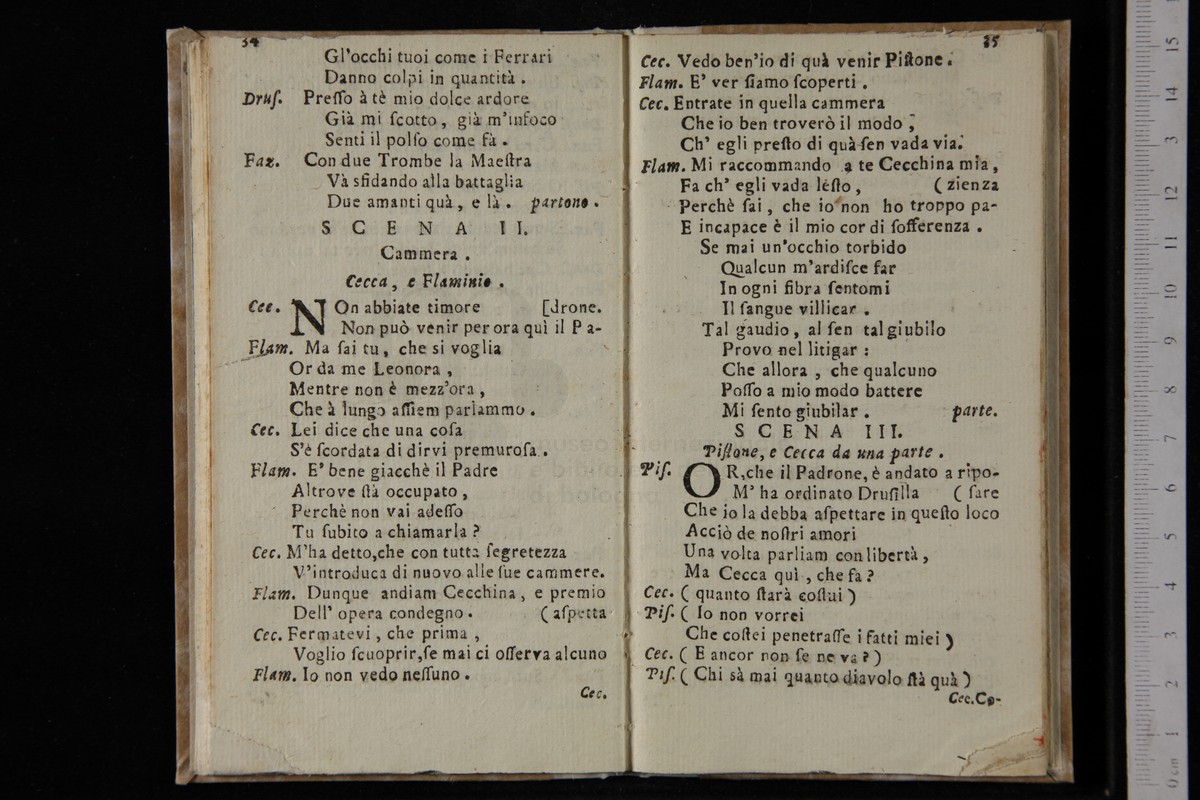 34
Gl'occhi tuoi come i Ferrari
Danno colpi in quantità .
Druſ. Preſſo à tè mio dolce ardore
Già mi ſcotto, già m'infoco
Senti il polſo come fà .
Faz. Con due Trombe la Maeſtra
Và sfidando alla battaglia
Due amanti quà, e là . partono .
SCENA II.
Cammera .
Cecca, e Flaminio .
Cec. NOn abbiate timore [drone.
Non può venir per ora quì il Pa-
Flam. Ma ſai tu, che si voglia
Or da me Leonora ,
Mentre non è mezz'ora ,
Che à lungo aſſiem parlammo .
Cec. Lei dice che una coſa
S'è ſcordata di dirvi premuroſa .
Flam. E' bene giacchè il Padre
Altrove ſtà occupato ,
Perchè non vai adeſſo
Tu ſubito a chiamarla ?
Cec. M'ha detto,che con tutta ſegretezza
V'introduca di nuovo alle ſue cammere.
Flam. Dunque andiam Cecchina, e premio
Dell' opera condegno . (aſpetta
Cec. Fermatevi, che prima ,
Voglio ſcuoprir,ſe mai ci oſſerva alcuno
Flam. Io non vedo neſſuno .
Cec.
35
Cec. Vedo ben'io di quà venir Piſtone .
Flam. E' ver ſiamo ſcoperti .
Cec. Entrate in quella cammera
Che io ben troverò il modo ,
Ch' egli preſto di quà ſen vada via.
Flam. Mi raccommando a te Cecchina mia,
Fa ch' egli vada leſto , (zienza
Perchè ſai, che io non ho troppo pa-
E incapace è il mio cor di ſofferenza .
Se mai un'occhio torbido
Qualcun m'ardiſce far
In ogni fibra ſentomi
Il ſangue villicar .
Tal gaudio, al ſen tal giubilo
Provo nel litigar :
Che allora , che qualcuno
Poſſo a mio modo battere
Mi ſento giubilar . parte.
SCENA III.
Piſtone, e Cecca da una parte .
Piſ. OR,che il Padrone, è andato a ripo-
M' ha ordinato Druſilla (ſare
Che io la debba aſpettare in queſto loco
Acciò de noſtri amori
Una volta parliam con libertà ,
Ma Cecca quì , che fa ?
Cec. ( quanto ſtarà coſtui )
Piſ. ( Io non vorrei
Che coſtei penetraſſe i fatti miei )
Cec. ( E ancor non ſe ne va ? )
Piſ. ( Chi sà mai quanto diavolo ſtà quà )
Cec.Co-